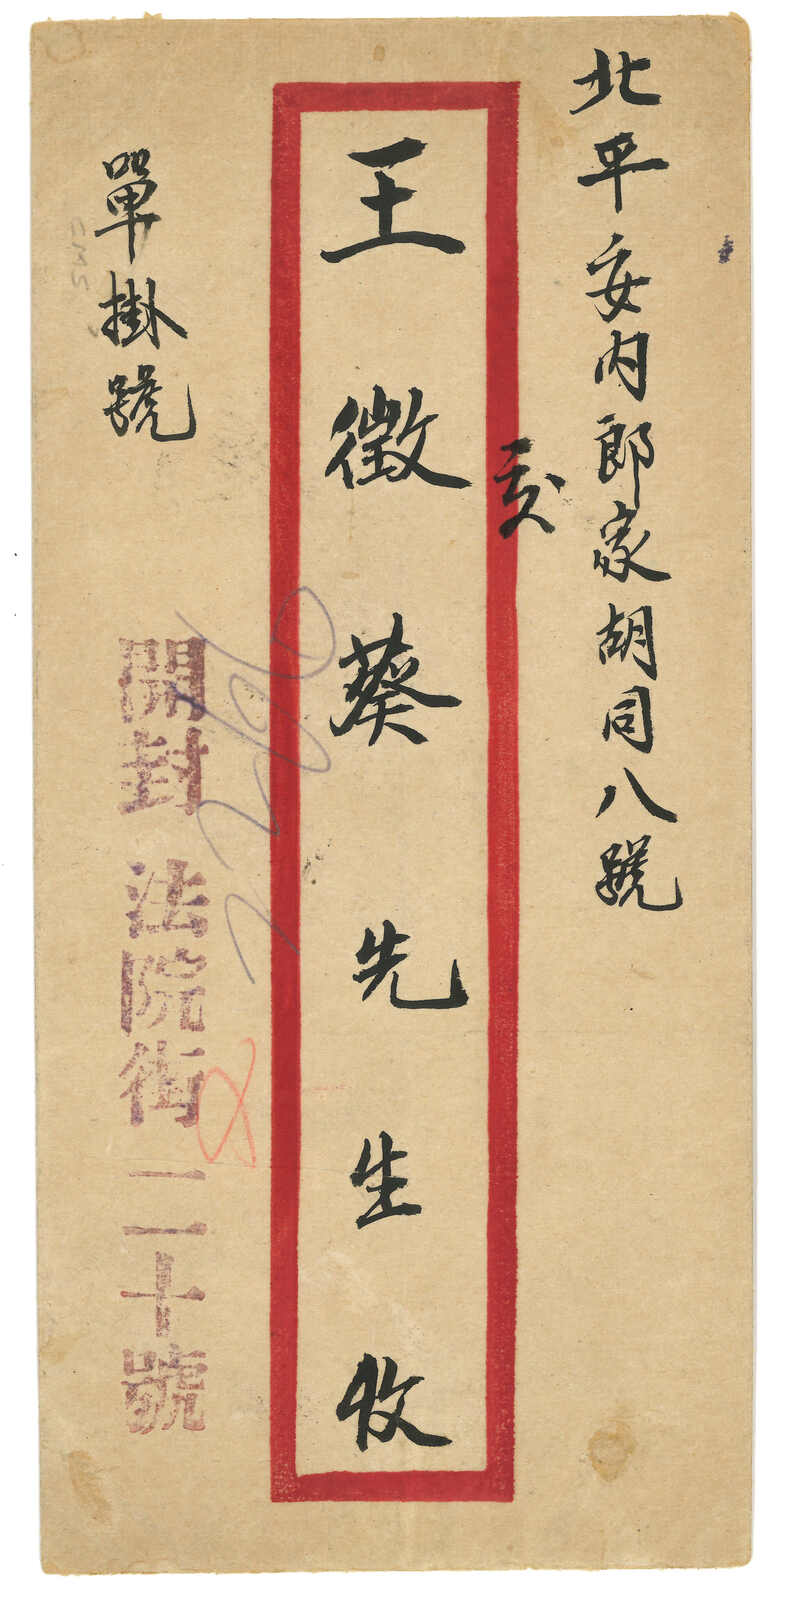 北平安内郎家胡同八號
交
王徵葵先生收
單掛號
開封 法院街二十號